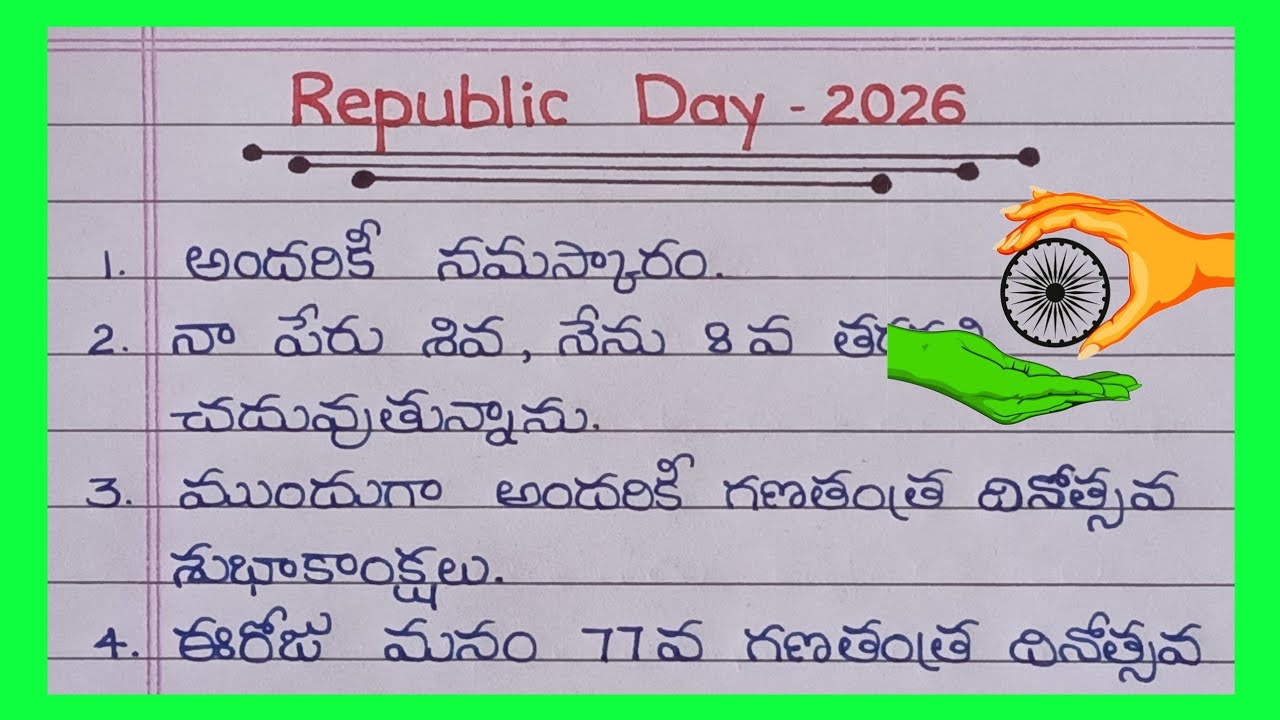 Republic Day - 2026
1. అందరికీ నమస్కారం.
2. నా పేరు శివ, నేను 8 వ
చదువుతున్నాను.
3. ముందుగా అందరికీ గణతంత్ర దినోత్సవ
శుభాకాంక్షలు.
4. ఈరోజు మనం 77వ గణతంత్ర దినోత్సవ